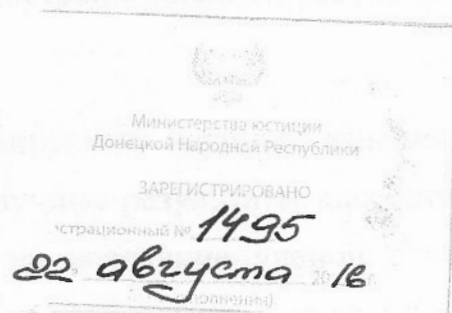 Министерства юстиции
Донецкой Народной Республики
ЗАРЕГИСТРИРОВАНО
страционный № 1495
22 августа 2016 г.